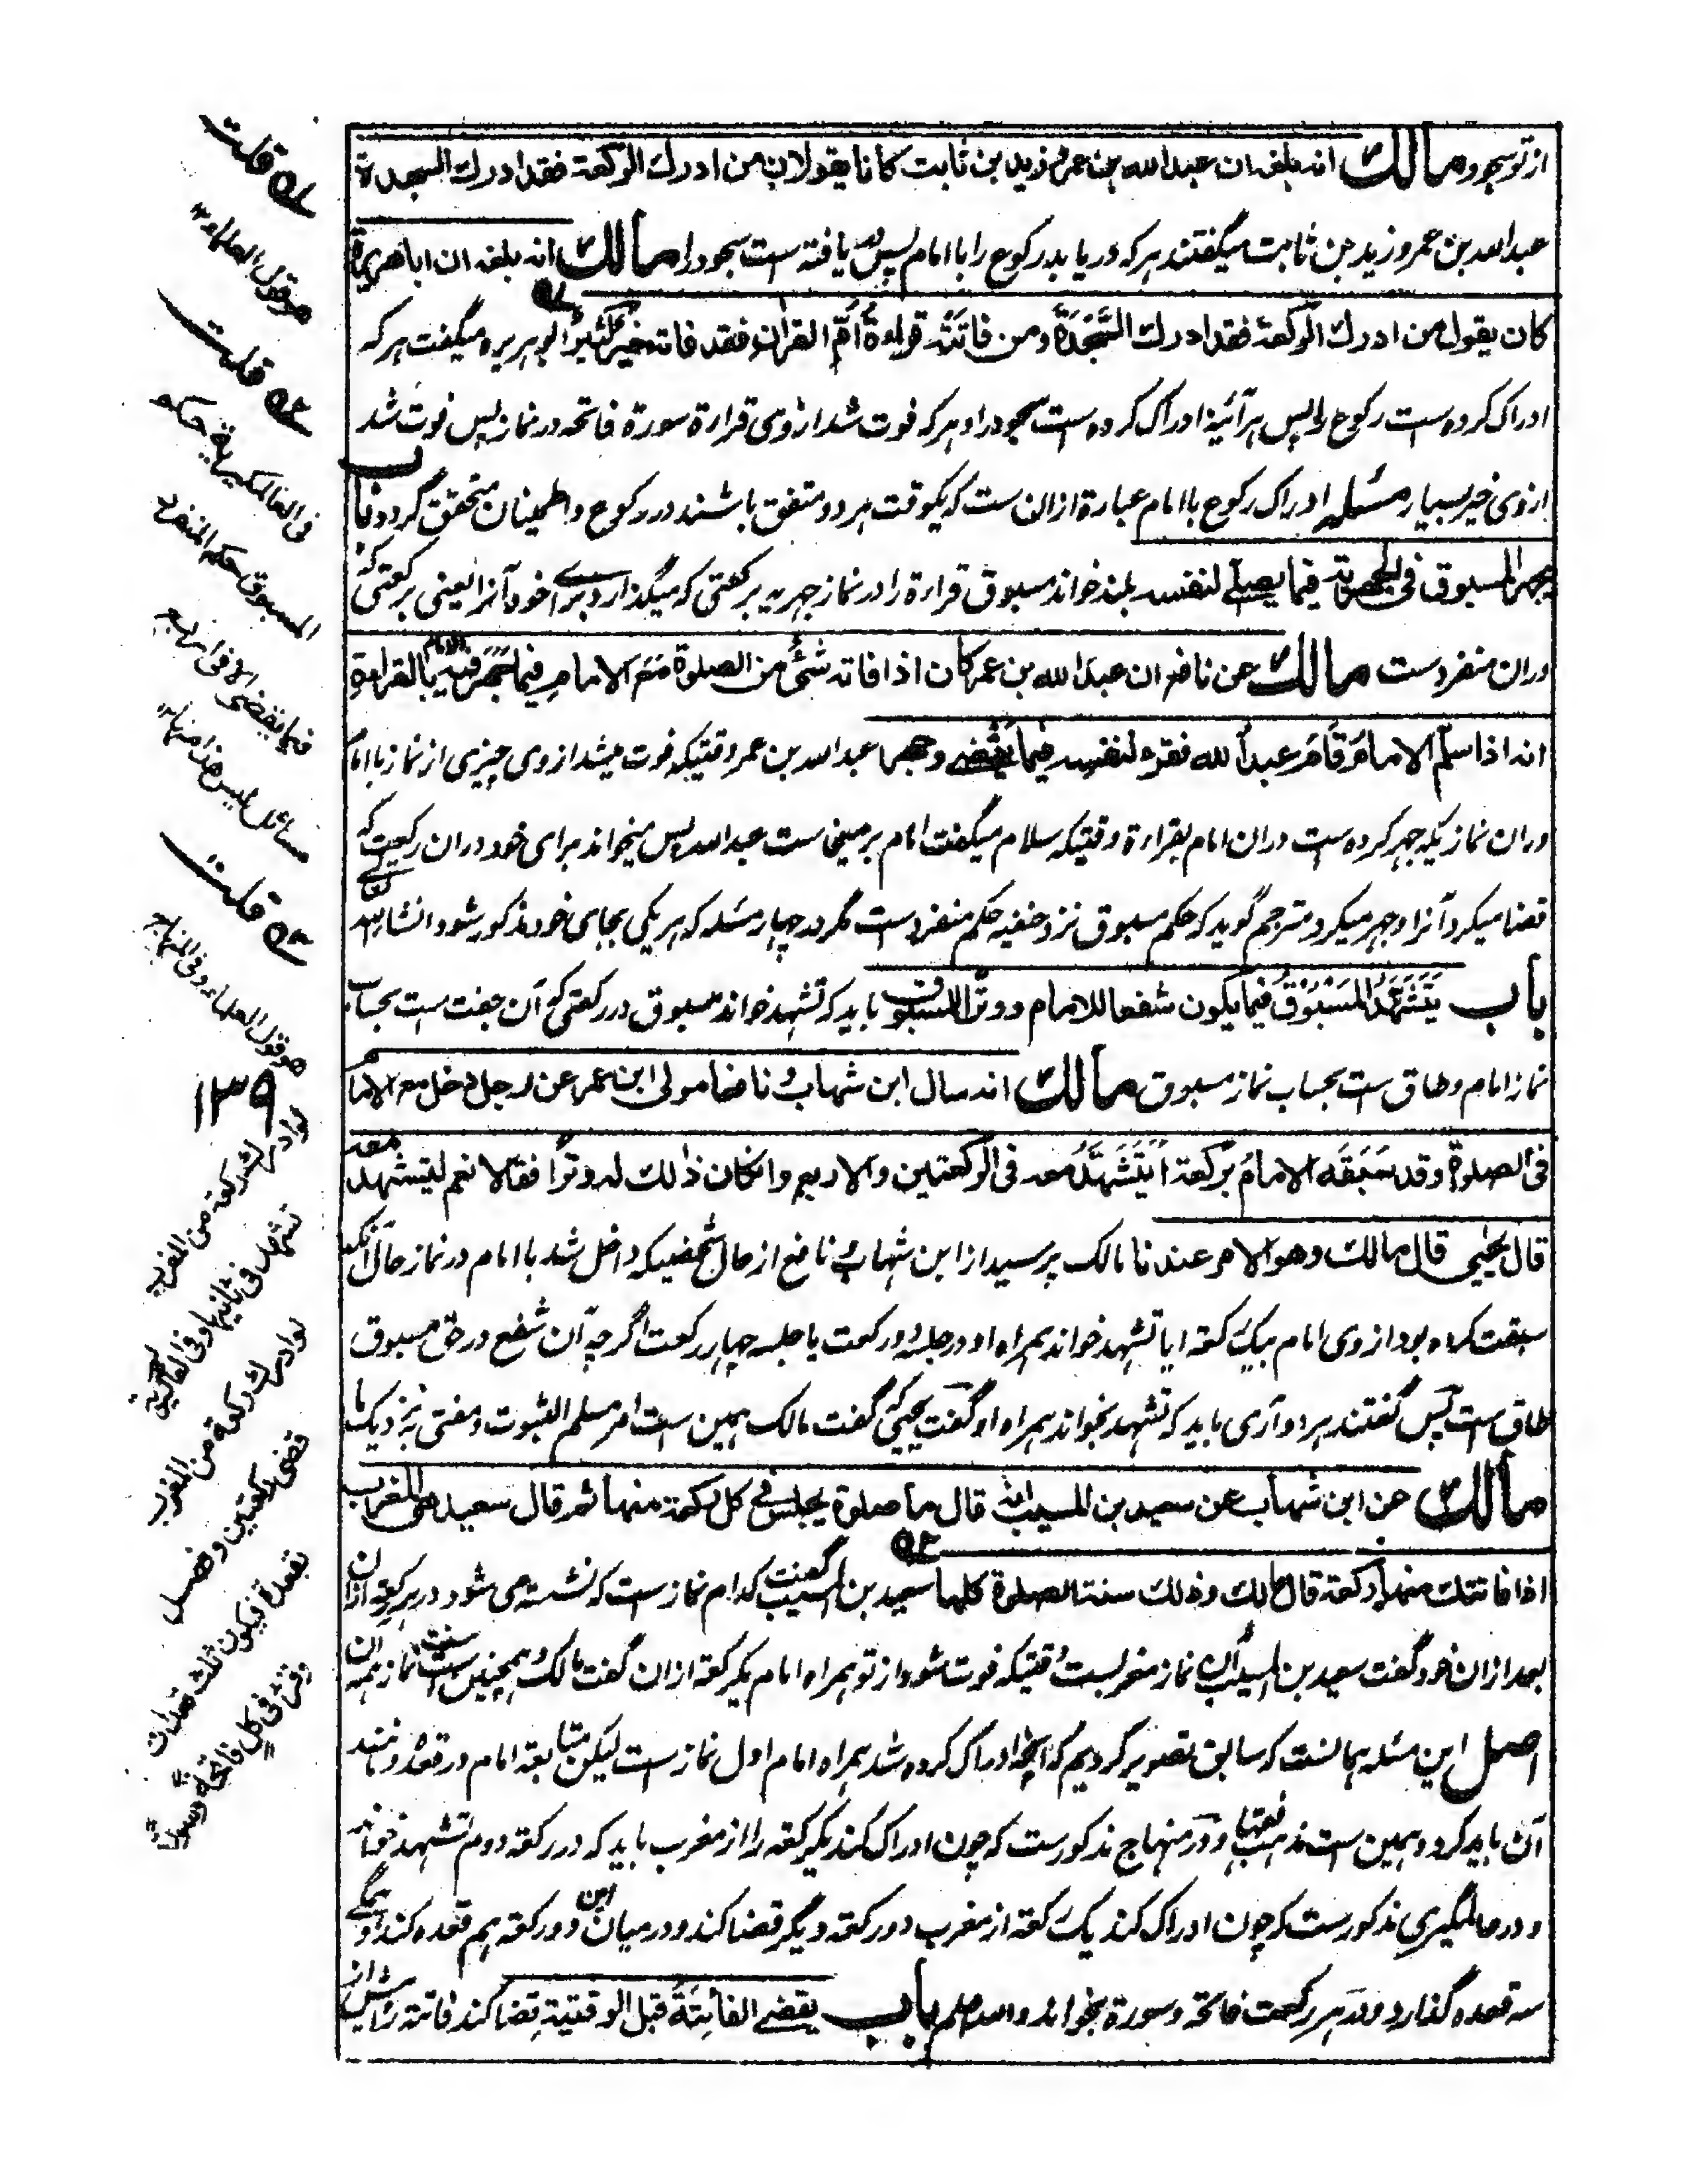 از تو سجود مالك انه بلغه ان عبد الله بن عمر و زيد بن ثابت كانا يقولان من ادرك الركعة فقد ادرك السجدة
عبدالله بن عمر و زید بن ثابت میگفتند هر که دریابد رکوع را با امام پس یافته است سجود را مالك انه بلغه ان اباهريرة
كان يقول من ادرك الركعة فقد ادرك السَّجْدَةَ ومن فاتَتْه قراءةُ اُمِّ القراٰن فقد فاته خيرٌ كثيرٌ ابو ہریره میگفت هر که
ادراک کرده ست رکوع را پس هر آئینه ادراک کرده است سجود را و هر که فوت شد از وی قراءة سورة فاتحه در نماز پس فوت شد
از وی خیر بسیار مسئله ادراک رکوع با امام عبارة ازان ست که یکوقت هر دو متفق باشند در رکوع و اطمینان متحقق گردد باب
يجهر المسبوق فى الجهرية فيما يصلے لنفسه بلند خواند مسبوق قراءة را در نماز جہریہ برکعتی که میگذارد برائے خود آنرا یعنی برکعتی که
دران منفرد ست مالك عن نافع ان عبد الله بن عمر كان اذا فاته شئ من الصلوة مَعَ الامامِ فيما جَهَرَ فيه الامام بالقراءة
انه اذا سلّم الامامُ قَامَ عبدُ الله فقرء لنفسه فيما يقضے وجهر عبد الله بن عمر وقتیکه فوت میشد از وی چیزی از نماز با امام
دران نماز یکه جهر کرده ست دران امام بقراءة وقتیکه سلام میگفت امام بر میخاست عبد الله پس میخواند برای خود دران رکعت که
قضا میکرد آنرا و جهر میکرد مترجم گوید که حکم مسبوق نزد حنفیه حکم منفرد ست مگر در چهار مسئله که هر یکی بجای خود مذکور شود انشاء الله تعالے
باب يَتَشَهَّدُ المَسْبُوْقُ فيما يكون شفعا للامام ووترا للمسبوق باید که تشهد خواند مسبوق در رکعتی که آن جفت ست بحساب
نماز امام و طاق ست بحساب نماز مسبوق مالك انه سال ابن شهاب و نافعا مولى ابن عمر عن رجل دخل مع الامام
فى الصلوة وقد سَبَقَه الامامُ بركعة اَيَتَشَهَّدُ معه فى الركعتين والاربع وان كان ذٰلك له وترًا فقالا نعم ليتشهد معه
قال يحيى قال مالك وهو الامر عندنا مالک پرسید از ابن شهاب و نافع از حال شخصیکه داخل شد با امام در نماز حال آنکه
سبقت کرده بود از وی امام بیک رکعة ایا تشهد خواند همراه او در جلسه دو رکعت یا جلسه چهار رکعت اگر چه آن شفع در حق مسبوق
طاق ست پس گفتند هر دو آری باید که تشهد بخواند همراه او گفت یحیی گفت مالک همین ست امر مسلم الثبوت و مفتی به نزدیک ما
مالك عن ابن شهاب عن سعيد بن المسيب انه قال ما صلوة يجلس فى كل ركعة منها ثم قال سعيد هى المغرب
اذا فاتتك منها ركعة قال مالك وذلك سنة الصلوة كلها سعید بن المسیب گفت کدام نماز ست که نشسته می شود در هر رکعة ازان
بعد ازان خود گفت سعید بن المسیب آن نماز مغرب ست وقتیکه فوت شود از تو همراه امام یک رکعة ازان گفت مالک همچنین ست سنت نماز همه آن
اصل این مسئله همانست که سابق تصویر کردیم که آنچه ادراک کرده شد همراه امام اول نماز ست لیکن متابعة امام در قعده و مانند
آن باید کرد و همین ست مذهب فقها و در منهاج مذکور ست که چون ادراک کند یک رکعة را از مغرب باید که در رکعة دوم تشهد خواند
و در عالمگیری مذکورست که چون ادراک کند یک رکعة از مغرب دو رکعة دیگر قضا کند و در میان این دو رکعة هم قعده کند و همگے
سه قعده گذارد و در هر رکعت فاتحه و سورة بخواند والله اعلم باب يقضے الفائتةَ قبل الوقتية قضا کند فائته را پیش از
ف۱ قلت
هو قول العلماء ۱۲
ف۲ قلت
فى العالمگيرية حكم
المسبوق حكم المنفرد
فيما يقضى الا فى اربع
مسائل ليس هذا منها ۱۲
ف۳ قلت
هو قول العلماء وفى المنهاج
۱۳۹
لو ادرك ركعة من المغرب
تشهد فى ثانيتها وفى العالمگيرية
لو ادرك ركعة من المغرب
قضى ركعتين وفصل
بقعدة فيكون ثلث قعدات
وقرأ فى كل فاتحة وسورة